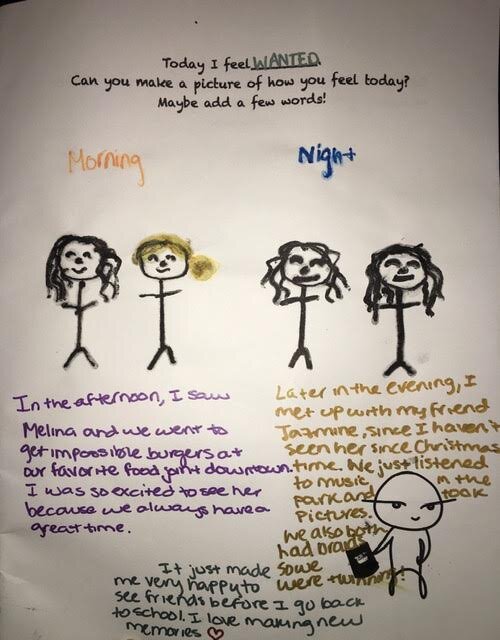 Today I feel WANTED.
Can you make a picture of how you feel today?
Maybe add a few words!
Morning
Night
In the afternoon, I saw
Melina and we went to
get impossible burgers at
our favorite food joint downtown.
I was so excited to see her
because we always have a
great time.
Later in the evening, I
met up with my friend
Jazmine, since I haven't
seen her since Christmas
time. We just listened
to music in the
park and took
pictures.
We also both
had braids
so we
were twinning!
It just made
me very happy to
see friends before I go back
to school. I love making new
memories ♡